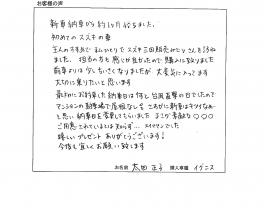 お客様の声
新車納車から約1ヶ月経ちました。
初めてのスズキの車
主人のすすめで スズキ三田販売 さんを訪ね
ました。担当の方も感じが良かったので購入に致りました
前車よりは少し小さくなりましたが 大変気に入ってます
大切に乗りたいと思います。
最初にお約束した納車日は何と台風直撃の日でしたので
マンションの駐車場で屋根なし さすがに新車はキツイなぁー
と思い、納車日を変更してもらいました まさか素敵な○○○
ご用意されているとは知らず…スイマセンでした
嬉しいプレゼント ありがとうございます!
今後も宜しくお願い致します
お名前 太田 正子 購入車種 イグニス